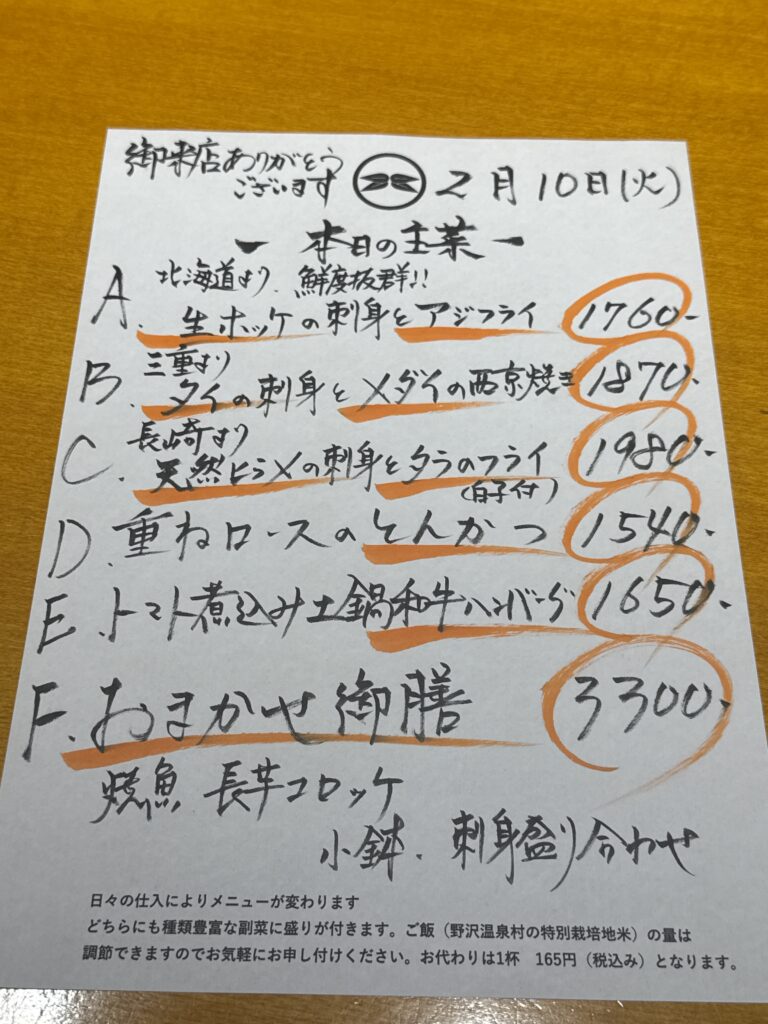 御来店ありがとう
ございます
2月10日(火)
ー 本日の主菜 ー
A. 北海道より、鮮度抜群!!
生ホッケの刺身とアジフライ 1760-
B. 三重より
タイの刺身とメダイの西京焼き 1870-
C. 長崎より
天然ヒラメの刺身とタラのフライ 1980-
(白子付)
D. 重ねロースのとんかつ 1540-
E. トマト煮込み土鍋和牛ハンバーグ 1650-
F. おまかせ御膳 3300-
焼魚 長芋コロッケ
小鉢、刺身盛り合わせ
日々の仕入によりメニューが変わります
どちらにも種類豊富な副菜に盛りが付きます。ご飯(野沢温泉村の特別栽培地米)の量は
調節できますのでお気軽にお申し付けください。お代わりは1杯 165円(税込み)となります。